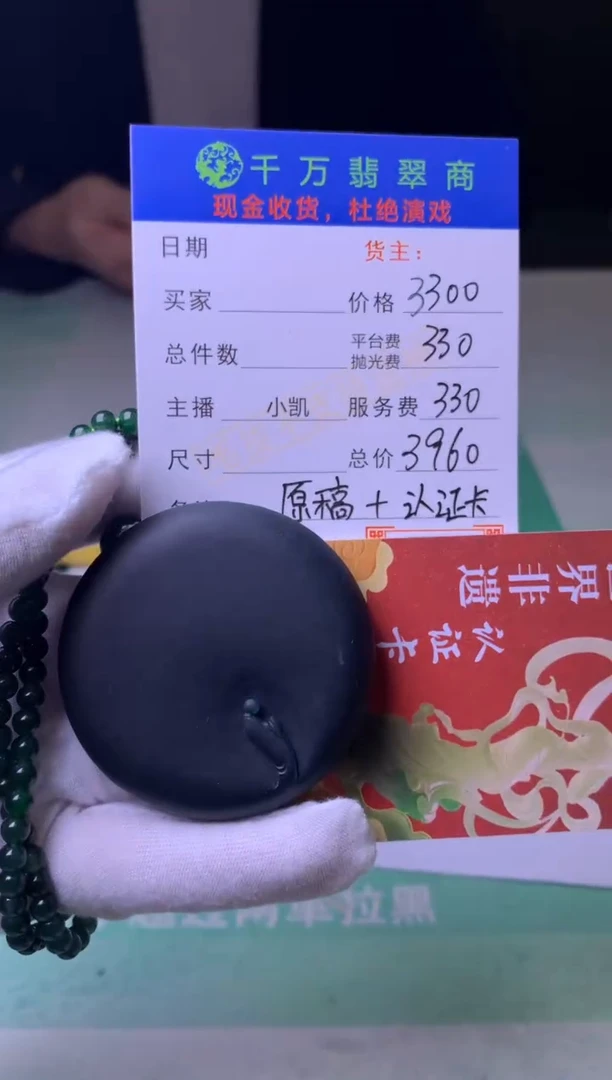 千万翡翠商
现金收货，杜绝演戏
日期 货主：
买家 价格 3300
总件数 平台费 抛光费 330
主播 小凯 服务费 330
尺寸 总价 3960
原稿 + 认证卡
世界非遗
认证卡
拉黑